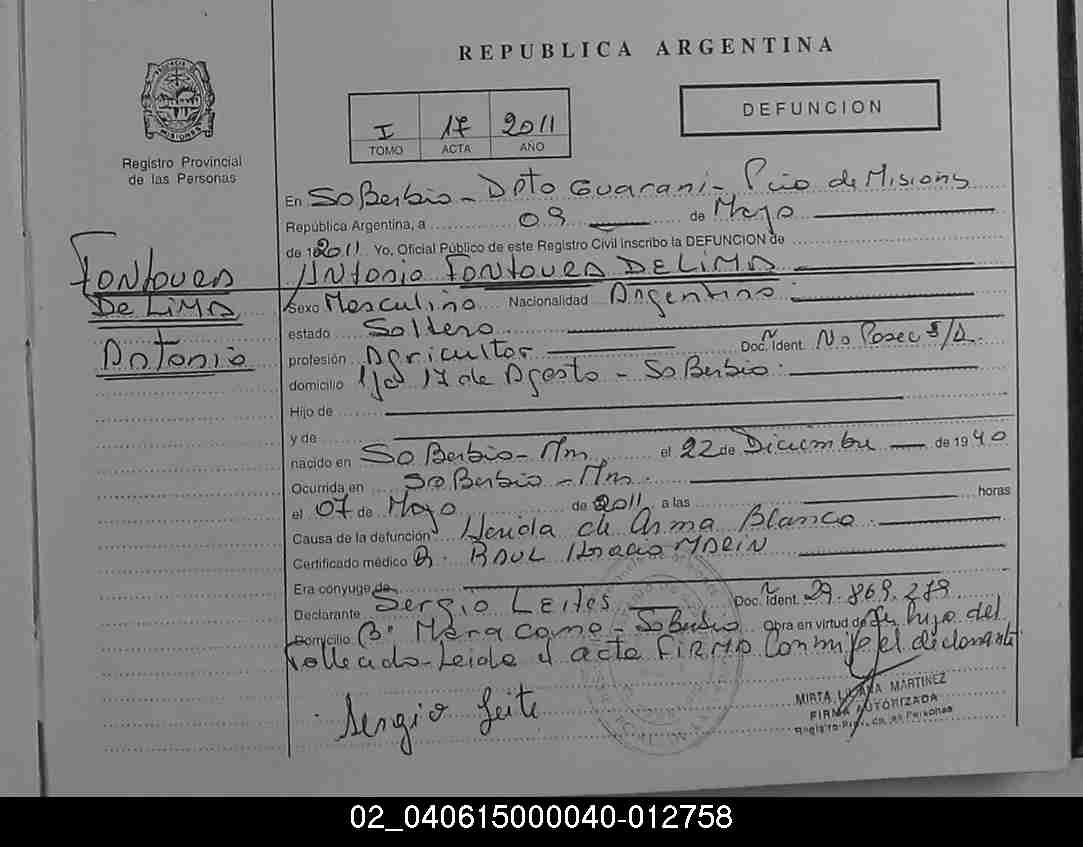 REPUBLICA ARGENTINA
DEFUNCION
I 17 2011
TOMO ACTA AÑO
Registro Provincial
de las Personas
MISIONES
En SoBerbio - Dpto Guarani - Pcio de Misions
República Argentina, a 09 de Mayo
de 2011 Yo, Oficial Público de este Registro Civil inscribo la DEFUNCION de
Antonio FONTOURA DE LIMA
FONTOURA
DE LIMA
Antonio
Sexo Masculino Nacionalidad Argentino
estado Soltero
profesión Agricultor Doc. Ident. No Posee S/D.
domicilio 17 de Agosto - SoBerbio
Hijo de
y de
nacido en SoBerbio - Mns. el 22 de Diciembre de 1940
Ocurrida en SoBerbio - Mns.
el 07 de Mayo de 2011 a las horas
Causa de la defunción Herida de Arma Blanca
Certificado médico D. RAUL Horacio MARIN
Era conyuge de
Declarante Sergio LEITES Doc. Ident. 29.869.279
Domicilio Bº Mbara - SoBerbio Obra en virtud de ser hijo del
Fallecido - Leida el acta FIRMA Conmigo el declarante
Sergio Leite
MIRTA LILIANA MARTINEZ
FIRMA AUTORIZADA
Registro Prov. de las Personas
02_040615000040-012758